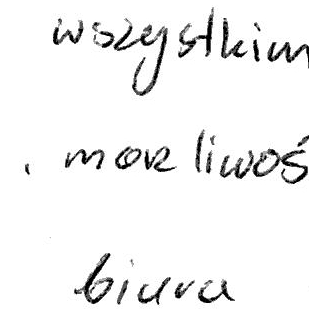 wszystkim
. możliwoś
biura